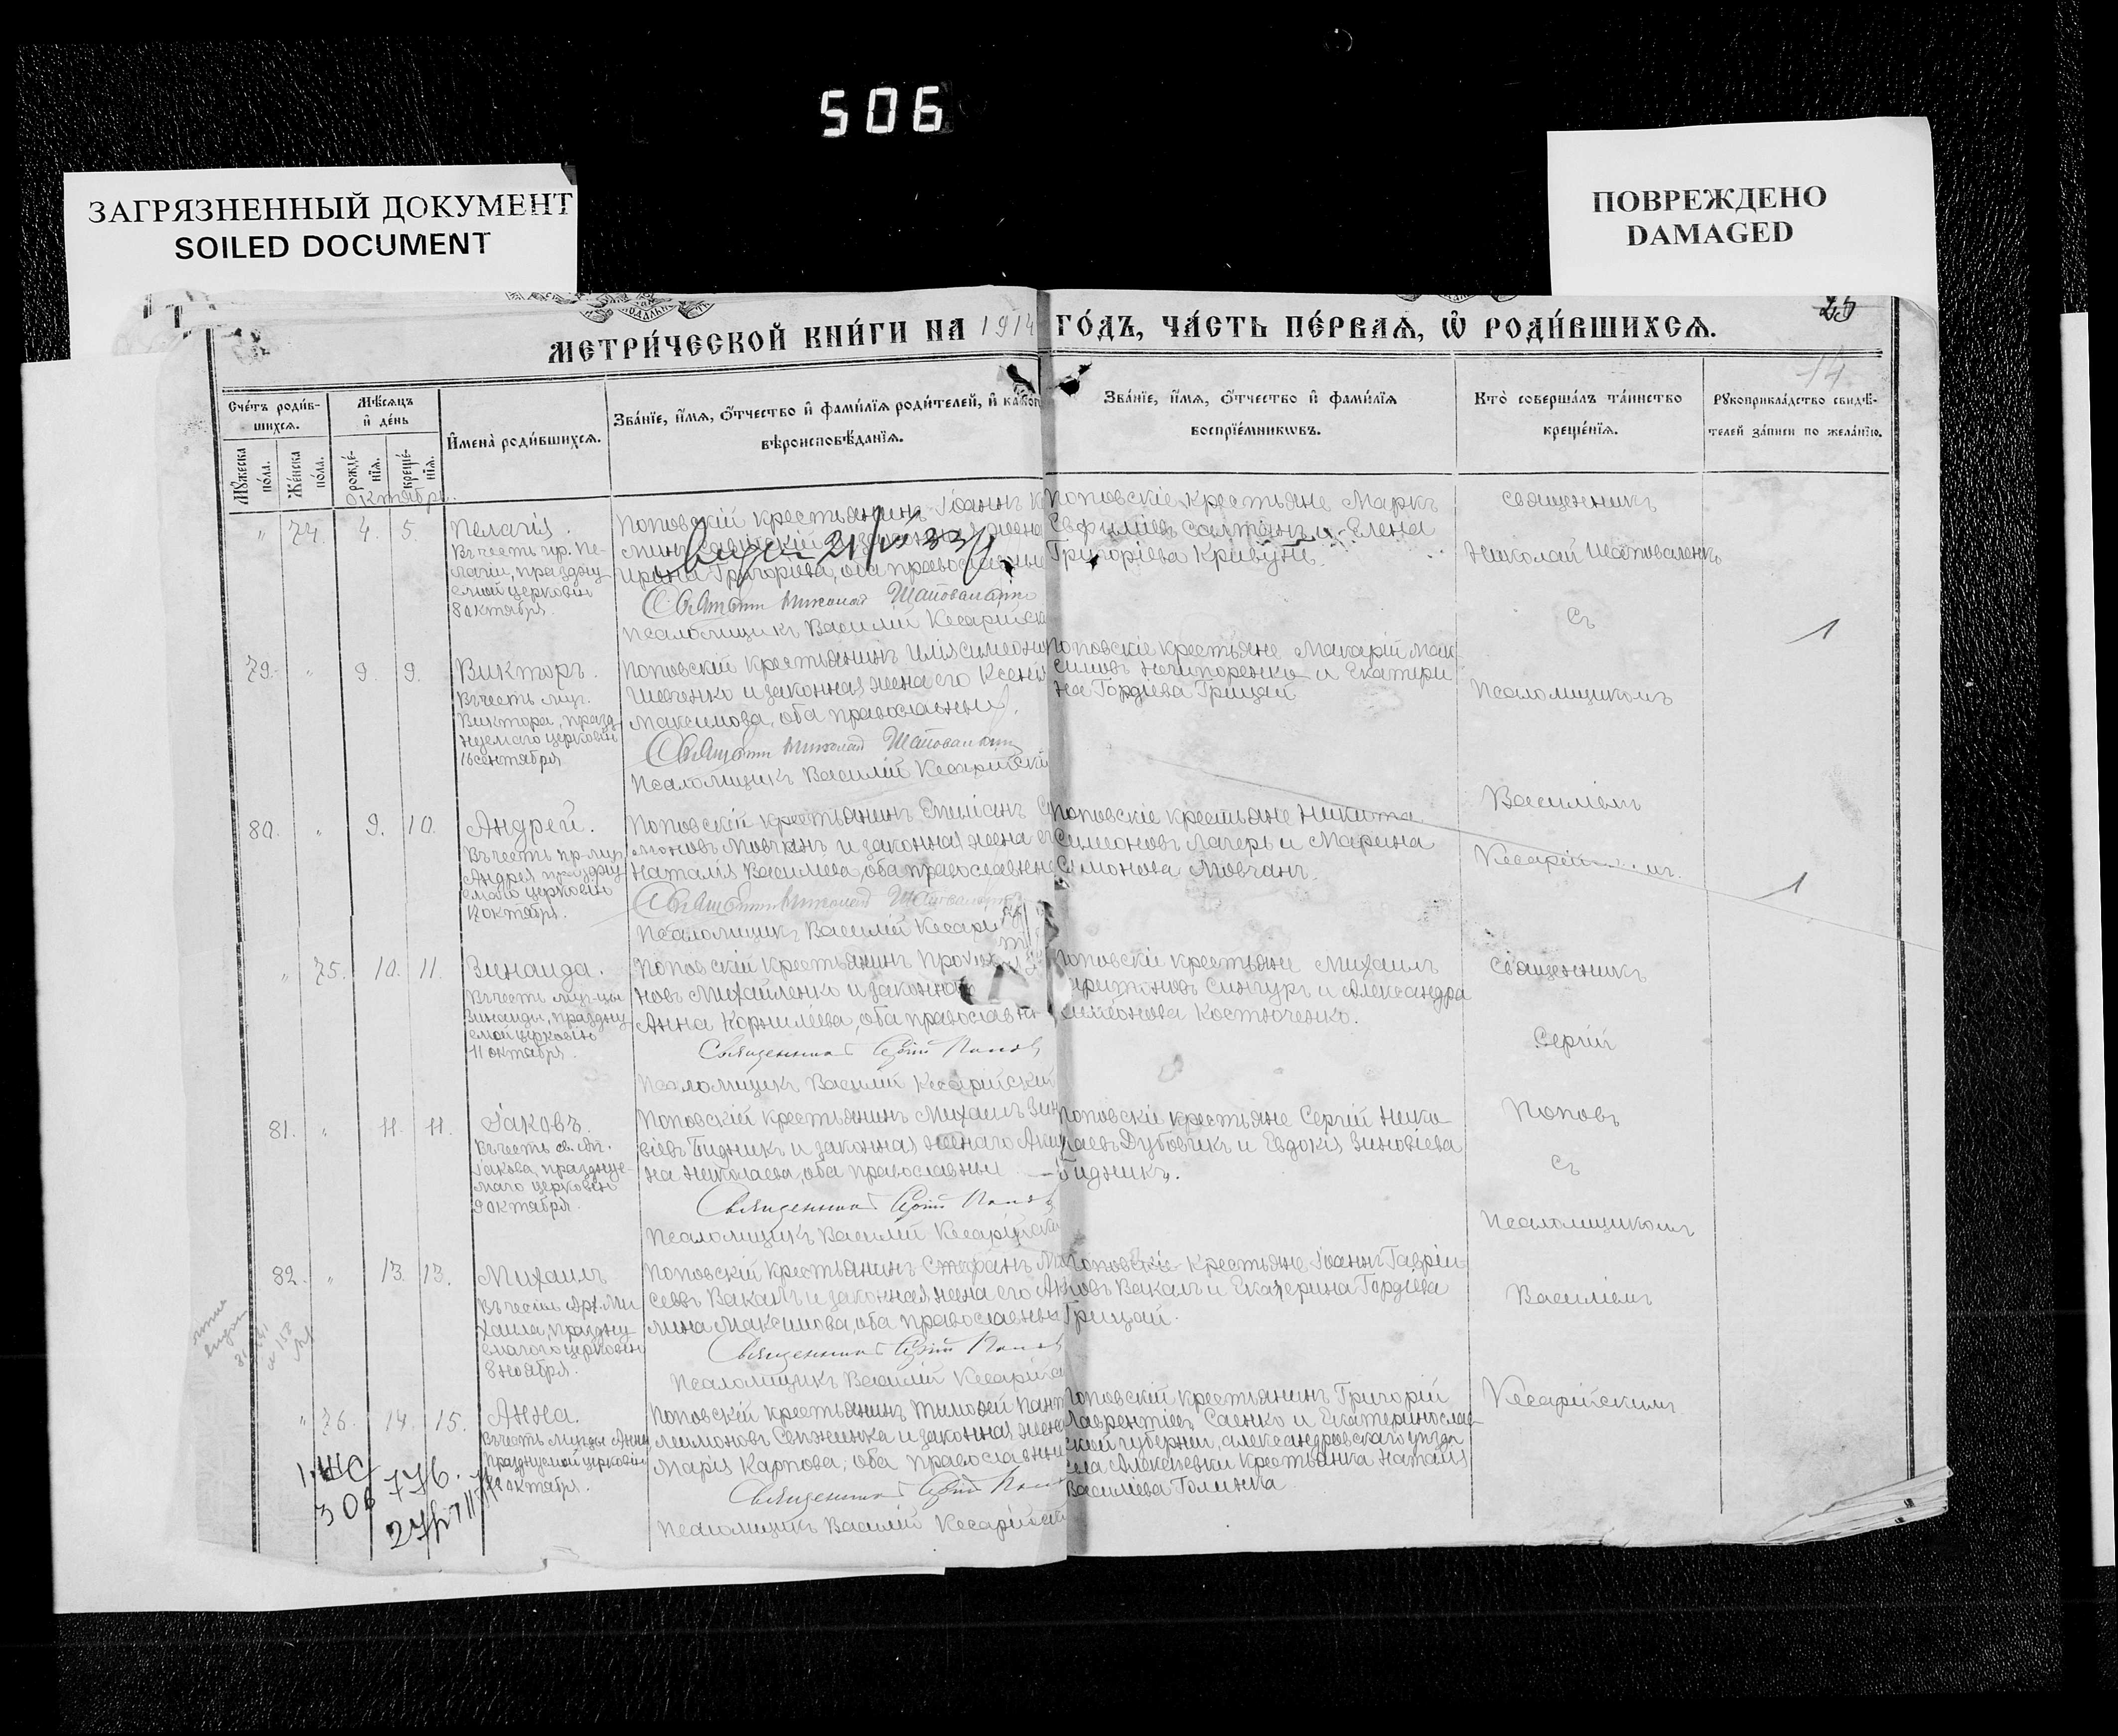 506
ЗАГРЯЗНЕННЫЙ ДОКУМЕНТ
SOILED DOCUMENT
ПОВРЕЖДЕНО
DAMAGED
МЕТРИ́ЧЕСКОЙ КНИ́ГИ НА 1914 ГО́ДЪ, ЧА́СТЬ ПЕ́РВАѦ, Ѽ РОДИ́ВШИХСѦ.
14
Сче́тъ роди́в-
шихсѧ.
Мꙋ́жеска по́ла.
Же́нска по́ла.
Мѣ́сѧцъ и҆ де́нь
рожде́нїѧ.
креще́нїѧ.
И҆мена̀ роди́вшихсѧ.
Зва́нїе, и҆́мѧ, ѻ҆́тчество и҆ фами́лїѧ роди́телей, и҆
вѣроисповѣ́данїѧ.
Зва́нїе, и҆́мѧ, ѻ҆́тчество и҆ фами́лїѧ
воспрїе́мникѡвъ.
Кто̀ соверша́лъ та́инство
креще́нїѧ.
Рꙋкоприкла́дство свидѣ́-
телей за́писи по жела́нїю.
Октябрь.
" 74. 4. 5. Пелагія.
Въ честь пр. Пе-
лагіи, праздну
емой церковію
8 октября.
Поповскій крестьянинъ Іоаннъ
законная жена
Григорьева, оба православные
21/
Николай Шаповаленко
Псаломщикъ Василій Кесарійскі
Поповскіе крестьяне Маркъ
Евфиміевъ Салтанъ и Елена
Григоріева Кривунь.
Священникъ
Николай Шаповаленко
съ
1
79. " 9. 9. Викторъ.
Въ честь муч.
Виктора, празд
нуемаго церковію
16 сентября
Поповскій крестьянинъ Илія Симеоно
Шевченко и законная жена его Ксенія
Максимова, оба православные.
Николай Шаповаленко
Псаломщикъ Василій Кесарійскі
Поповскіе крестьяне Макарій Мак
симовъ Нечипоренко и Екатери
на Гордіева Грицай
Псаломщикомъ
Василіемъ
80. " 9. 10. Андрей.
Въ честь пр-муч.
Андрея праздну
емаго церковію
октября.
Поповскій крестьянинъ Емиліанъ
моновъ Мовчанъ и законная жена ег
Наталія Василіева, оба православные
Николай Шаповаленко
Псаломщикъ Василій Кесарі
Поповскіе крестьяне Никита
Симеоновъ Лагеръ и Марина
Симонова Мовчанъ.
1
" 75. 10. 11. Зинаида.
Въ честь муч-цы
Зинаиды, праздну
емой церковію
11 октября.
Поповскій крестьянинъ
новъ Михайленко и законная
Анна Корниліева, оба православн
Священникъ Сергій Попов
Псаломщикъ Василій Кесарійскій
Поповскіе крестьяне Михаилъ
Сингуръ и Александра
Симеонова Костюченко.
Священникъ
Сергій
81. " 11. 11. Іаковъ.
Въ честь св. ап.
Іакова, праздруе-
маго церковію
9 октября.
Поповскій крестьянинъ Михаилъ Зин
віевъ Гидникъ и законная жена его
на Николаева, оба православные
Священникъ Сергій Попов
Псаломщикъ Василій Кесарійски
Поповскіе крестьяне Сергій Нико
лаевъ Дубовикъ и Евдокія Зиновіева
Гидникъ.
Поповъ
съ
Псаломщикомъ
82. " 13. 13. Михаилъ
Въ честь Арх. Ми
хаила, праздну
емаго церковію
8 ноября.
Поповскій крестьянинъ Стефанъ
сеевъ Вакалъ и законная жена его
лина Максимова, оба православны
Священникъ Сергій Попов
Псаломщикъ Василій Кесарійск
Поповскіе крестьяне Іоаннъ Гавріи
ловъ Вакалъ и Екатерина Гордіева
Грицай.
Василіемъ
" 76. 14. 15. Анна.
Въ честь муч-цы Анны
празднуемой церковію
октября.
Поповскій крестьянинъ Тимоѳей Пант
леимоновъ и законная жена
Марія Карпова, оба православны
Священникъ Сергій Попо
Псаломщикъ Василій Кесарійскі
Поповскій крестьянинъ Григорій
Лаврентіевъ Саенко и Екатеринослав
ской губерніи, Александровскаго уѣзда
села Алексѣевки крестьянка Наталія
Василіева Голинка
Кесарійскимъ